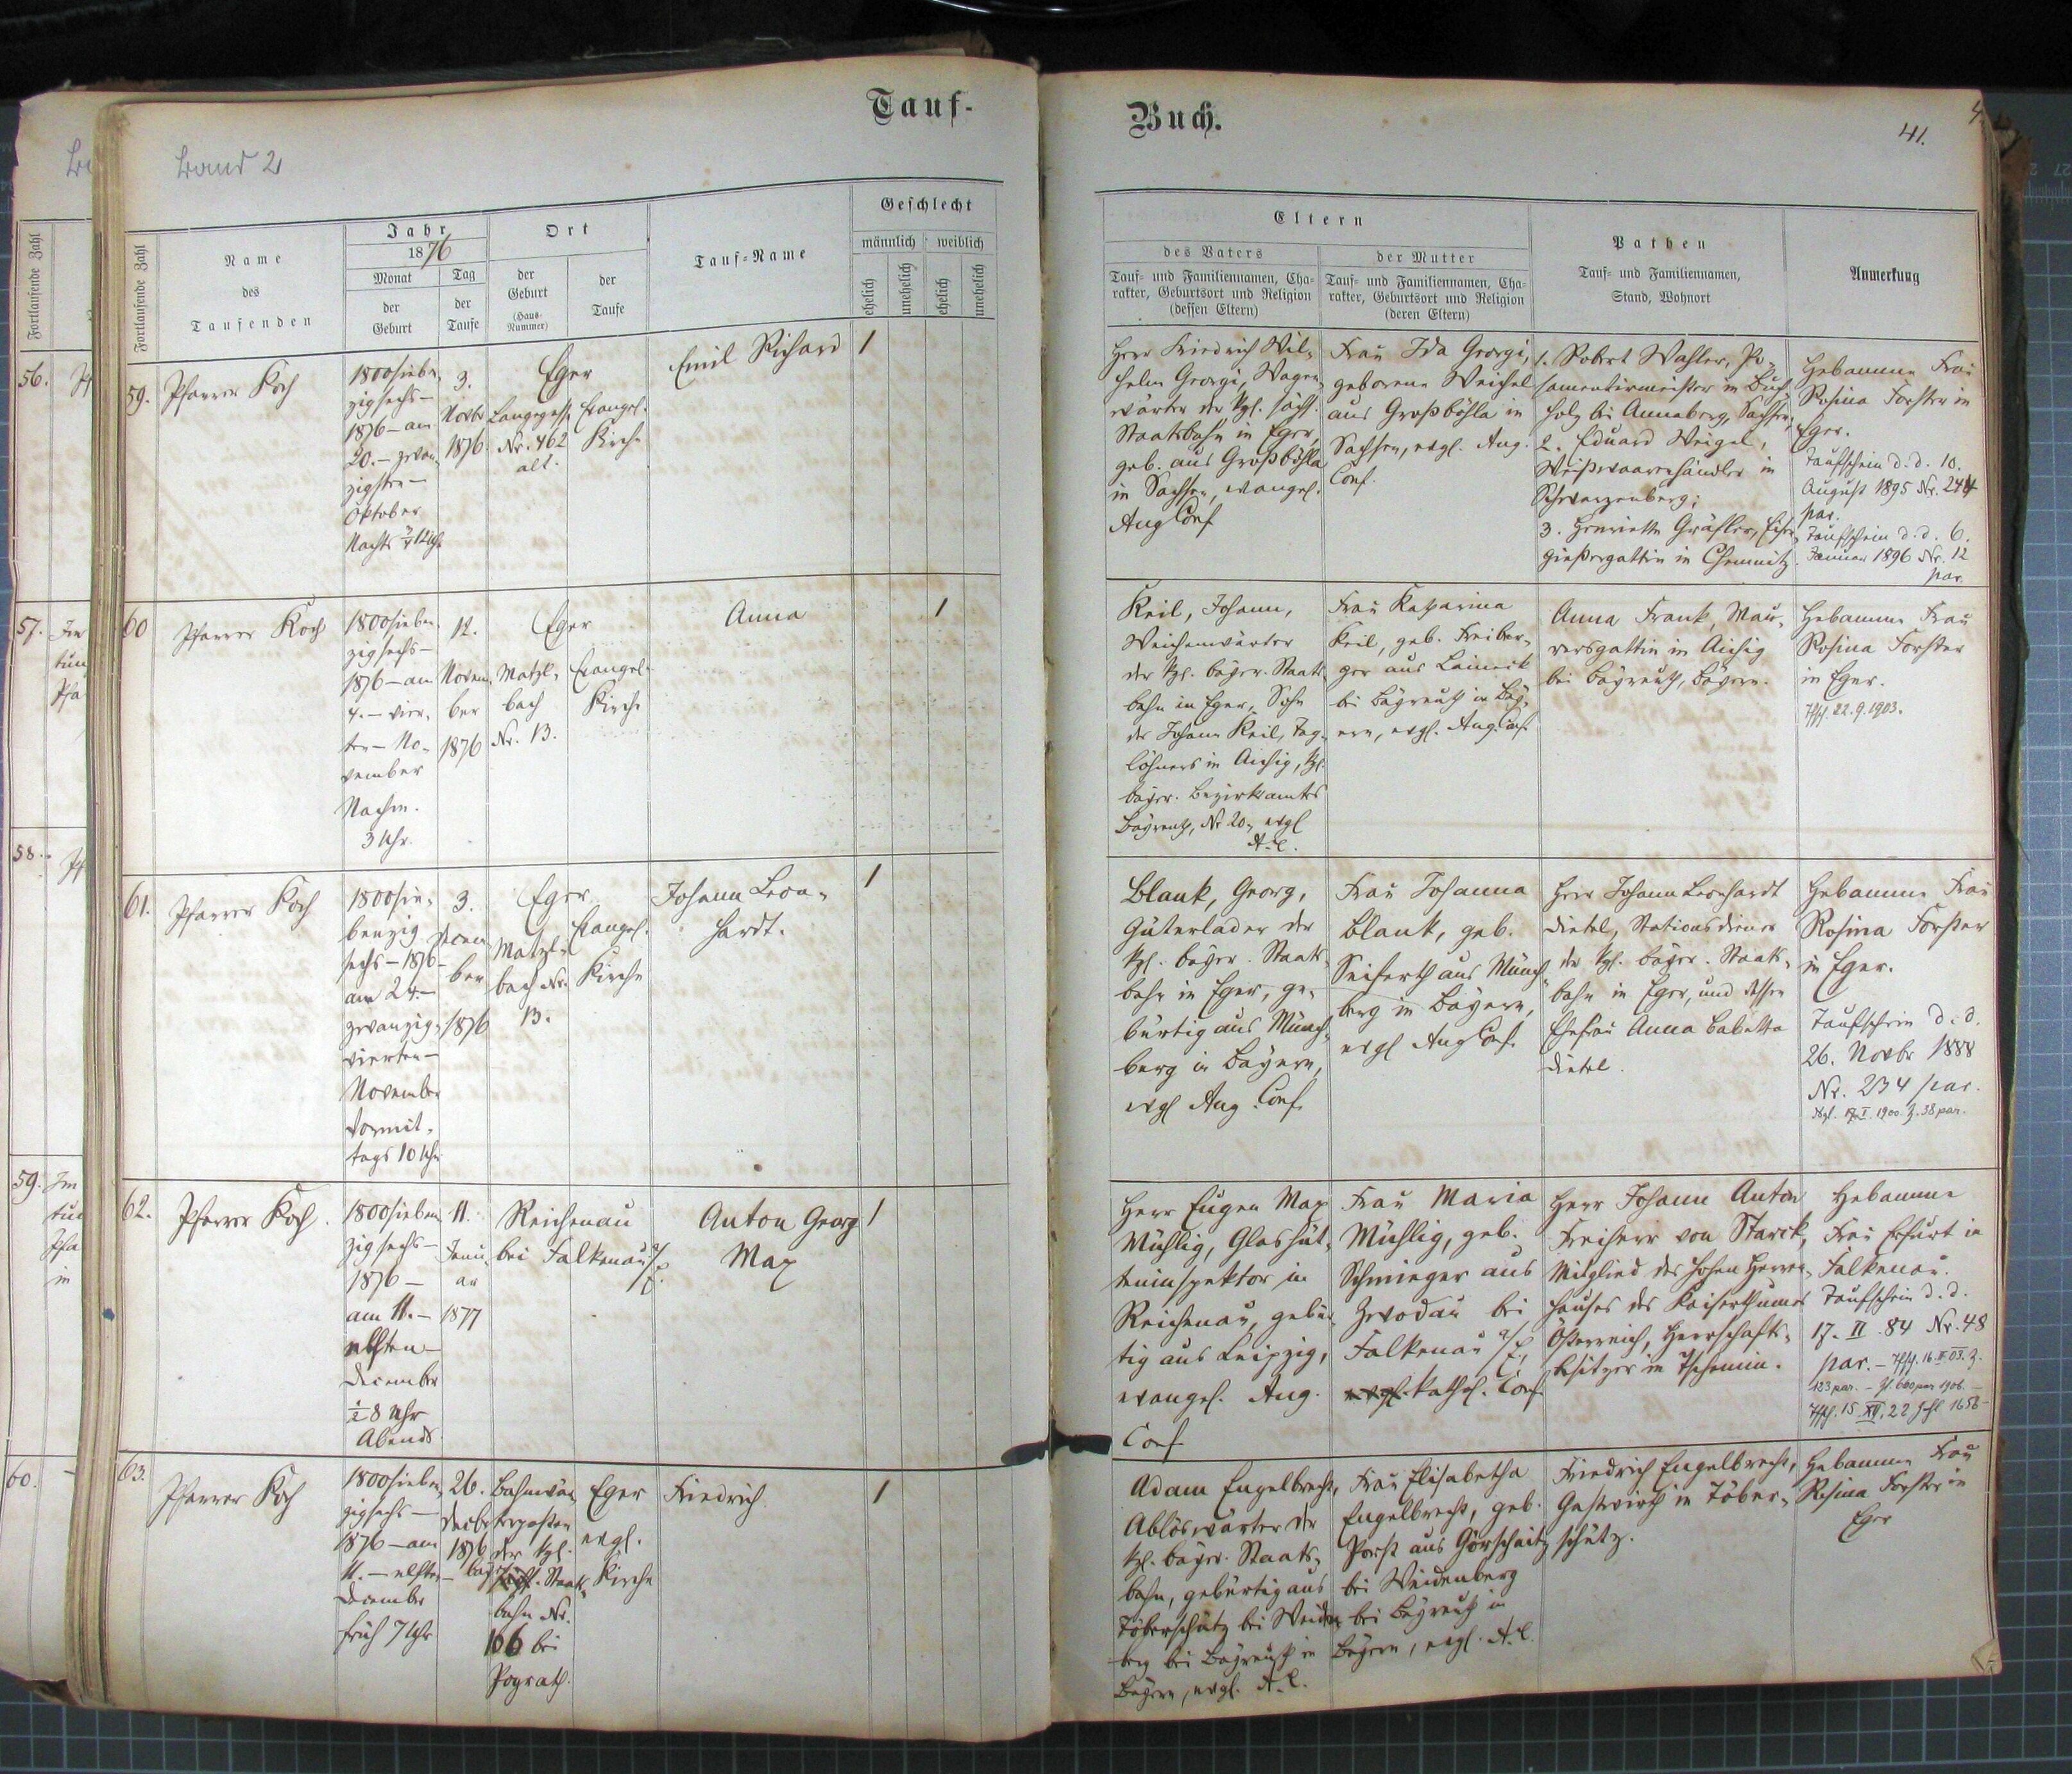 Tauf-
Buch.
41.
Band 2
Fortlaufende Zahl
Name
des
Taufenden
Jahr
1876
Monat
der
Geburt
Tag
der
Taufe
Ort
der
Geburt
(Haus-
Nummer)
der
Taufe
Tauf-Name
Geschlecht
männlich
weiblich
ehelich
unehelich
ehelich
unehelich
Eltern
des Vaters
Tauf- und Familiennamen, Cha-
rakter, Geburtsort und Religion
(dessen Eltern)
der Mutter
Tauf- und Familiennamen, Cha-
rakter, Geburtsort und Religion
(deren Eltern)
Pathen
Tauf- und Familiennamen,
Stand, Wohnort
Anmerkung
59.
Pfarrer Koch
1800sieben-
zigsechs-
1876 - am
20. - zwan-
zigsten -
Oktober
Nachts 3/4 12 Uhr
3.
Novbr
1876.
Eger
Langegasse
Nr. 462
alt.
Evangel.
Kirche
Emil Richard
1
Herr Friedrich Wil-
helm Georgi, Wagen-
wärter der kgl. sächs.
Staatsbahn in Eger,
geb. aus Großböhla
in Sachsen, evangel.
Aug Conf
Frau Ida Georgi,
geborene Weichel
aus Großböhla in
Sachsen, evgl. Aug.
Conf.
1. Robert Wahler, Po-
samentirmeister in Buch-
holz bei Annaberg, Sachsen;
2. Eduard Weigel,
Weißwaarenhändler in
Schwarzenberg;
3. Henriette Gräfler, Eisen-
gießergattin in Chemnitz.
Hebamme Frau
Rosina Forster in
Eger.
Taufschein d. d. 10.
August 1895 Nr. 244
par.
Taufschein d. d. 6.
Januar 1896 Nr. 12
par.
60
Pfarrer Koch
1800sieben-
zigsechs-
1876 - am
4. - vier-
ten - No-
vember
Nachm.
3 Uhr.
12.
Novem-
ber
1876
Eger
Matzl-
bach
Nr. 13.
Evangel.
Kirche
Anna
1
Keil, Johann,
Weichenwärter
der kgl. bayer. Staats-
bahn in Eger, Sohn
des Johann Keil, Tag-
löhners in Aichig, kgl.
bayer. Bezirksamtes
Bayreuth, Nr 20, evgl
A. C.
Frau Katharina
Keil, geb. Freiber-
ger aus Laineck
bei Bayreuth in Bay-
ern, evgl. Aug. Conf.
Anna Frank, Mau-
rersgattin in Aichig
bei Bayreuth, Bayern.
Hebamme Frau
Rosina Forster
in Eger.
Tfsch. 22.9.1903.
61.
Pfarrer Koch
1800sie-
benzig
sechs - 1876 -
am 24. -
zwanzig-
vierten -
November
Vormit-
tags 10 Uhr
3.
Decem-
ber
1876
Eger
Matzl-
bach Nr.
13.
Evangel.
Kirche
Johann Leon-
hardt.
1
Blank, Georg,
Güterlader der
kgl. bayer. Staats-
bahn in Eger, ge-
bürtig aus Münch-
berg in Bayern,
evgl Aug. Conf.
Frau Johanna
Blank, geb.
Seiferth aus Münch-
berg in Bayern,
evgl Aug Conf.
Herr Johann Leonhardt
Dietel, Stationsdiener
der kgl. bayer. Staats-
bahn in Eger, und dessen
Ehefrau Anna Babetta
Dietel.
Hebamme Frau
Rosina Forster
in Eger.
Taufschein d. d.
26. Novbr 1888
Nr. 234 par.
1900. Z. 38 par.
62.
Pfarrer Koch.
1800sieben-
zigsechs-
1876 -
am 11. -
elften -
December
1/2 8 Uhr
Abends
11.
Janu-
ar
1877
Reichenau
bei Falkenau a/E.
Anton Georg
Max
1
Herr Eugen Max
Mühlig, Glashüt-
teninspektor in
Reichenau, gebür-
tig aus Leipzig,
evangel. Aug.
Conf
Frau Maria
Mühlig, geb.
Schmieger aus
Zwodau bei
Falkenau a/E.,
evgl. kathol. Conf.
Herr Johann Anton
Freiherr von Starck,
Mitglied des hohen Herren-
hauses des Kaiserthumes
Österreich, Herrschafts-
besitzer in Tschemin.
Hebamme
Frau Erhart in
Falkenau.
Taufschein d. d.
17. II. 84 Nr. 48
par. - Tfsch. 16. II. 03. Z.
123 par. - Z. 600 par 1906. -
Tfsch. 15. XII. 22 Zhl. 1658 -
63.
Pfarrer Koch
1800sieben-
zigsechs -
1876 - am
11. - elften -
December
früh 7 Uhr
26.
Decbr
1876
Bahnwär-
terposten
der kgl.
bayr. sächs. Staats-
bahn Nr.
106 bei
Pograth.
Eger
evgl.
Kirche
Friedrich.
1
Adam Engelbrecht,
Ablöswärter der
kgl. bayer. Staats-
bahn, gebürtig aus
Töberschütz bei Weiden-
berg bei Bayreuth in
Bayern, evgl. A. C.
Frau Elisabetha
Engelbrecht, geb.
Porst aus Görschnitz
bei Weidenberg
bei Bayreuth in
Bayern, evgl. A. C.
Friedrich Engelbrecht,
Gastwirth in Töber-
schütz.
Hebamme Frau
Rosina Forster in
Eger
Fortlaufende Zahl
56.
57.
58.
59.
60.